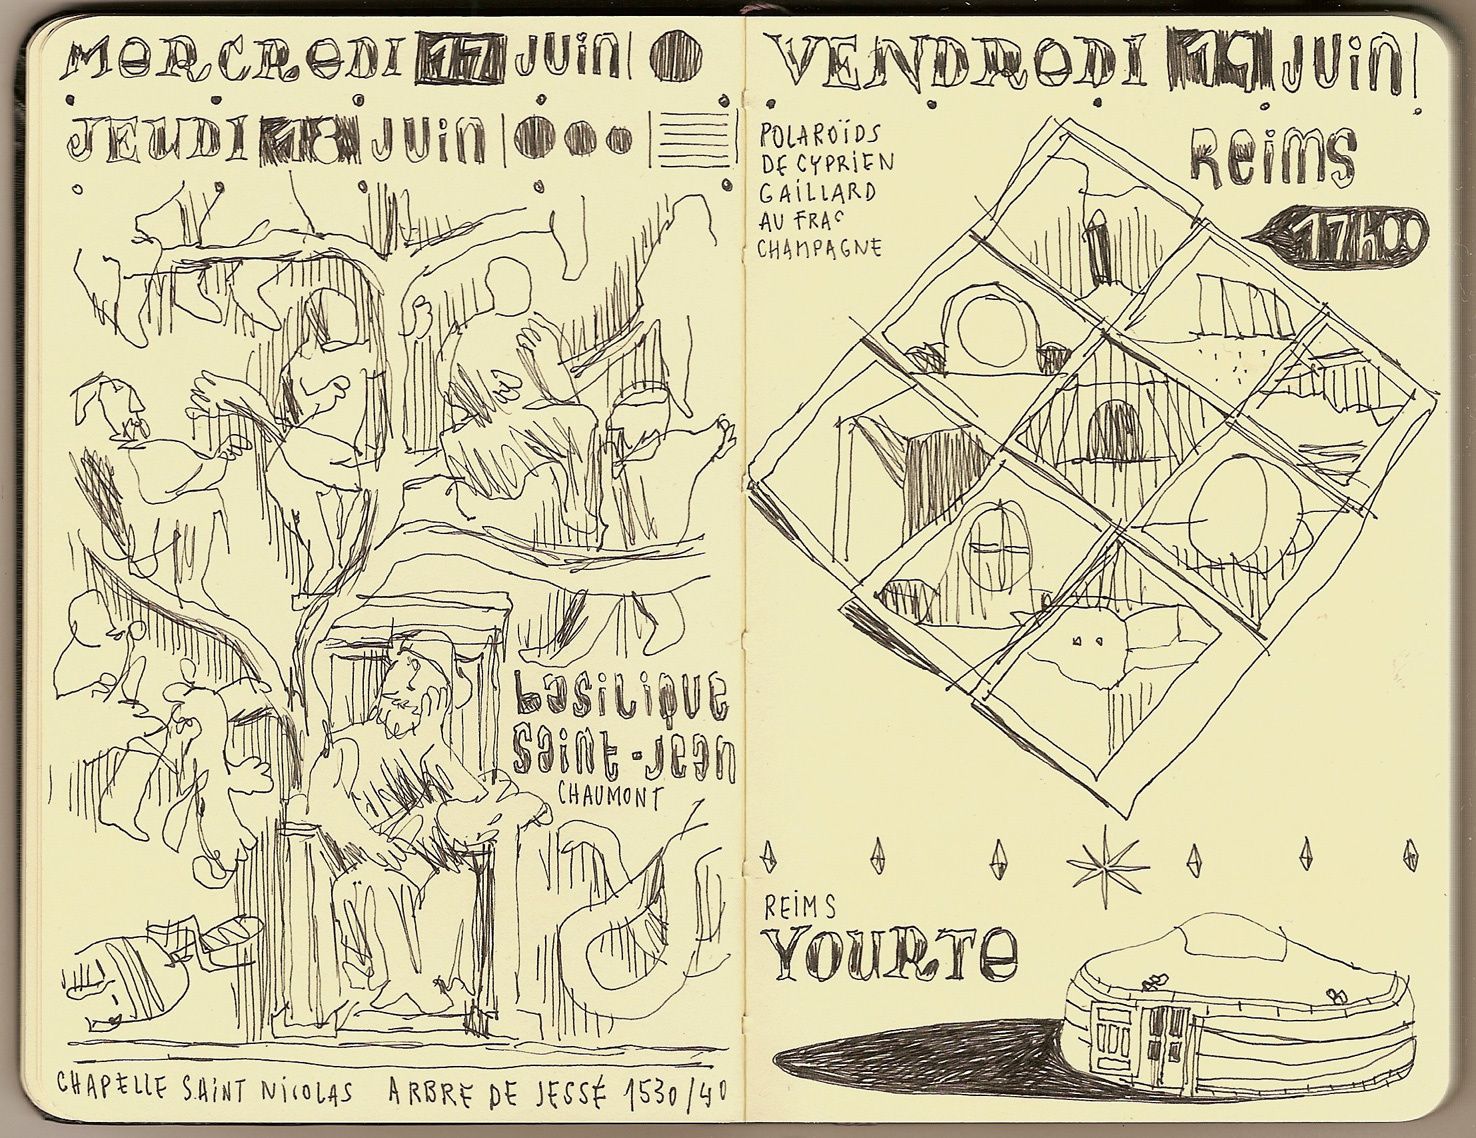 MERCREDI 17 JUIN
JEUDI 18 JUIN
BASILIQUE
SAINT-JEAN
CHAUMONT
CHAPELLE SAINT NICOLAS ARBRE DE JESSÉ 1530/40
VENDREDI 19 JUIN
POLAROÏDS
DE CYPRIEN
GAILLARD
AU FRAC
CHAMPAGNE
REIMS
17h00
REIMS
YOURTE